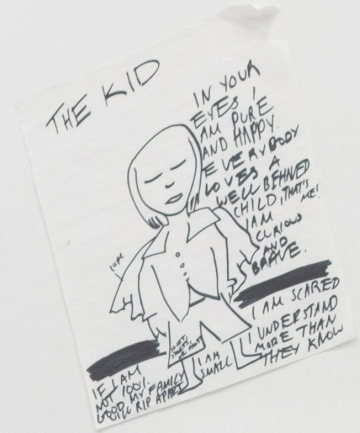 THE KID
IN YOUR
EYES I
AM PURE
AND HAPPY.
EVERYBODY
LOVES A
WELL BEHAVED
CHILD, THAT'S
ME!
I AM
CURIOUS
AND
BRAVE.
CAPE
I AM SCARED
I UNDERSTAND
MORE THAN
THEY KNOW
I AM
SMALL
IF I AM
NOT 100%
GOOD MY FAMILY
WILL RIP APART